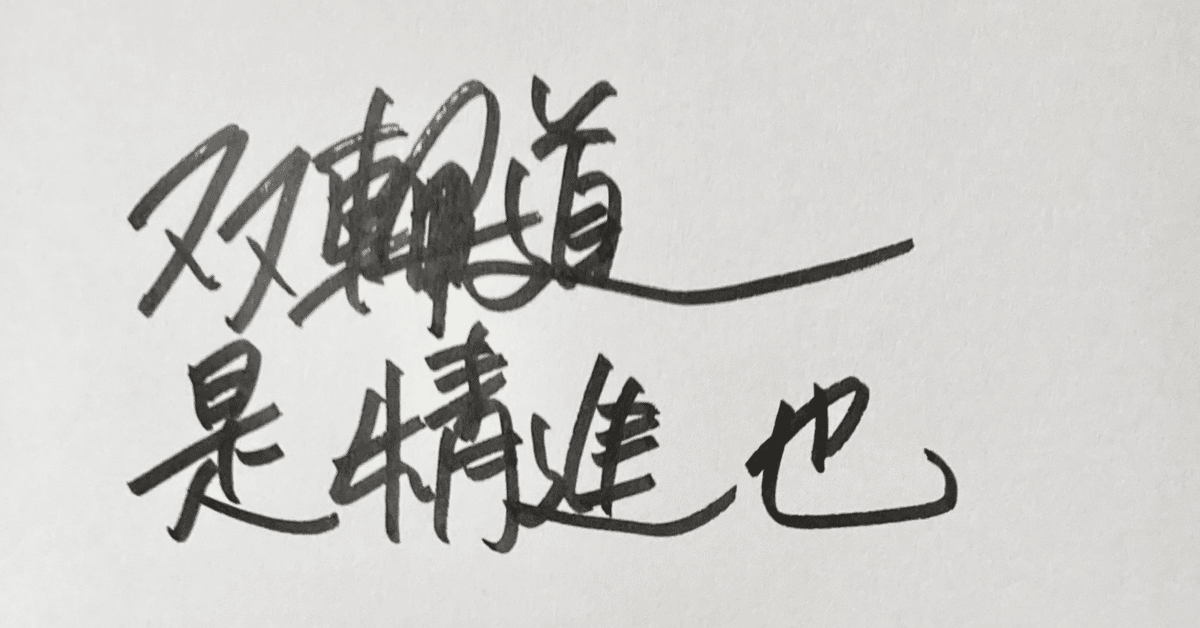 双輪道
是精進也